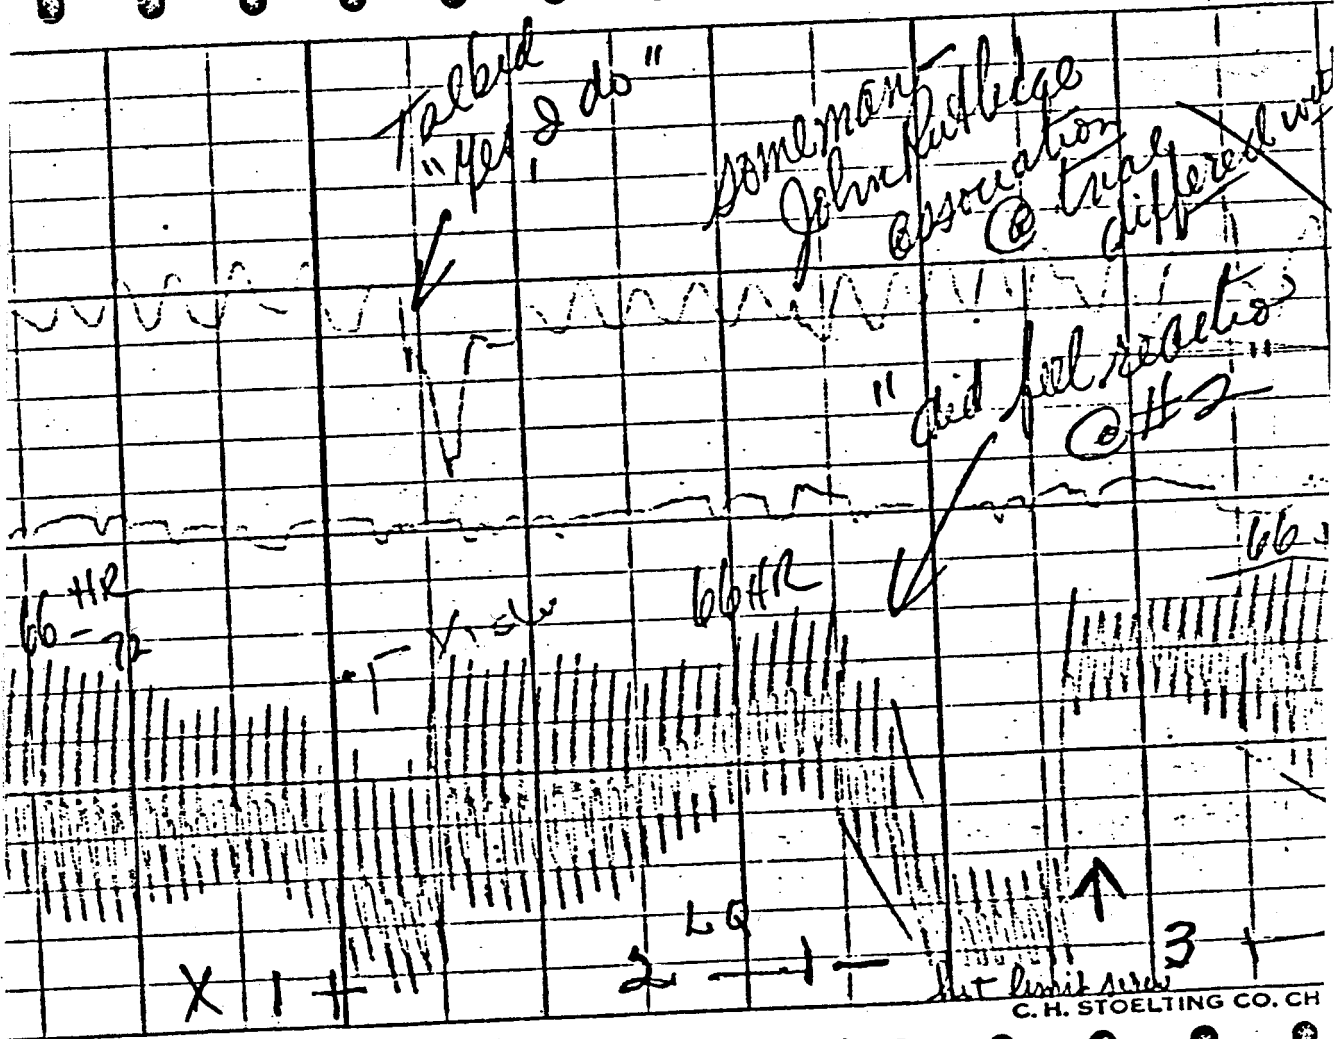 Talked
"Yes I do"
some man -
John Rutledge
association
@ trial
differed
"did feel reactio
@ #2"
66 - 72 HR
66 HR
66
X 1 +
LQ
2 - 1 -
3
limit screw
C. H. STOELTING CO. CH